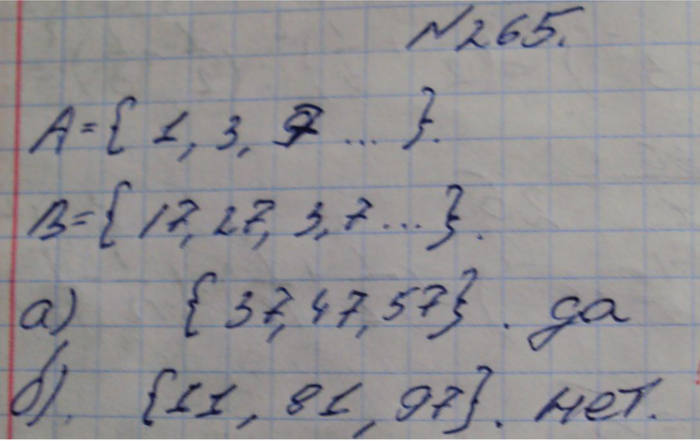 №265.
A={1, 3, 9 ...}.
B={17, 27, 3, 7 ...}.
а) {37, 47, 57}. да
б). {11, 81, 97}. нет.